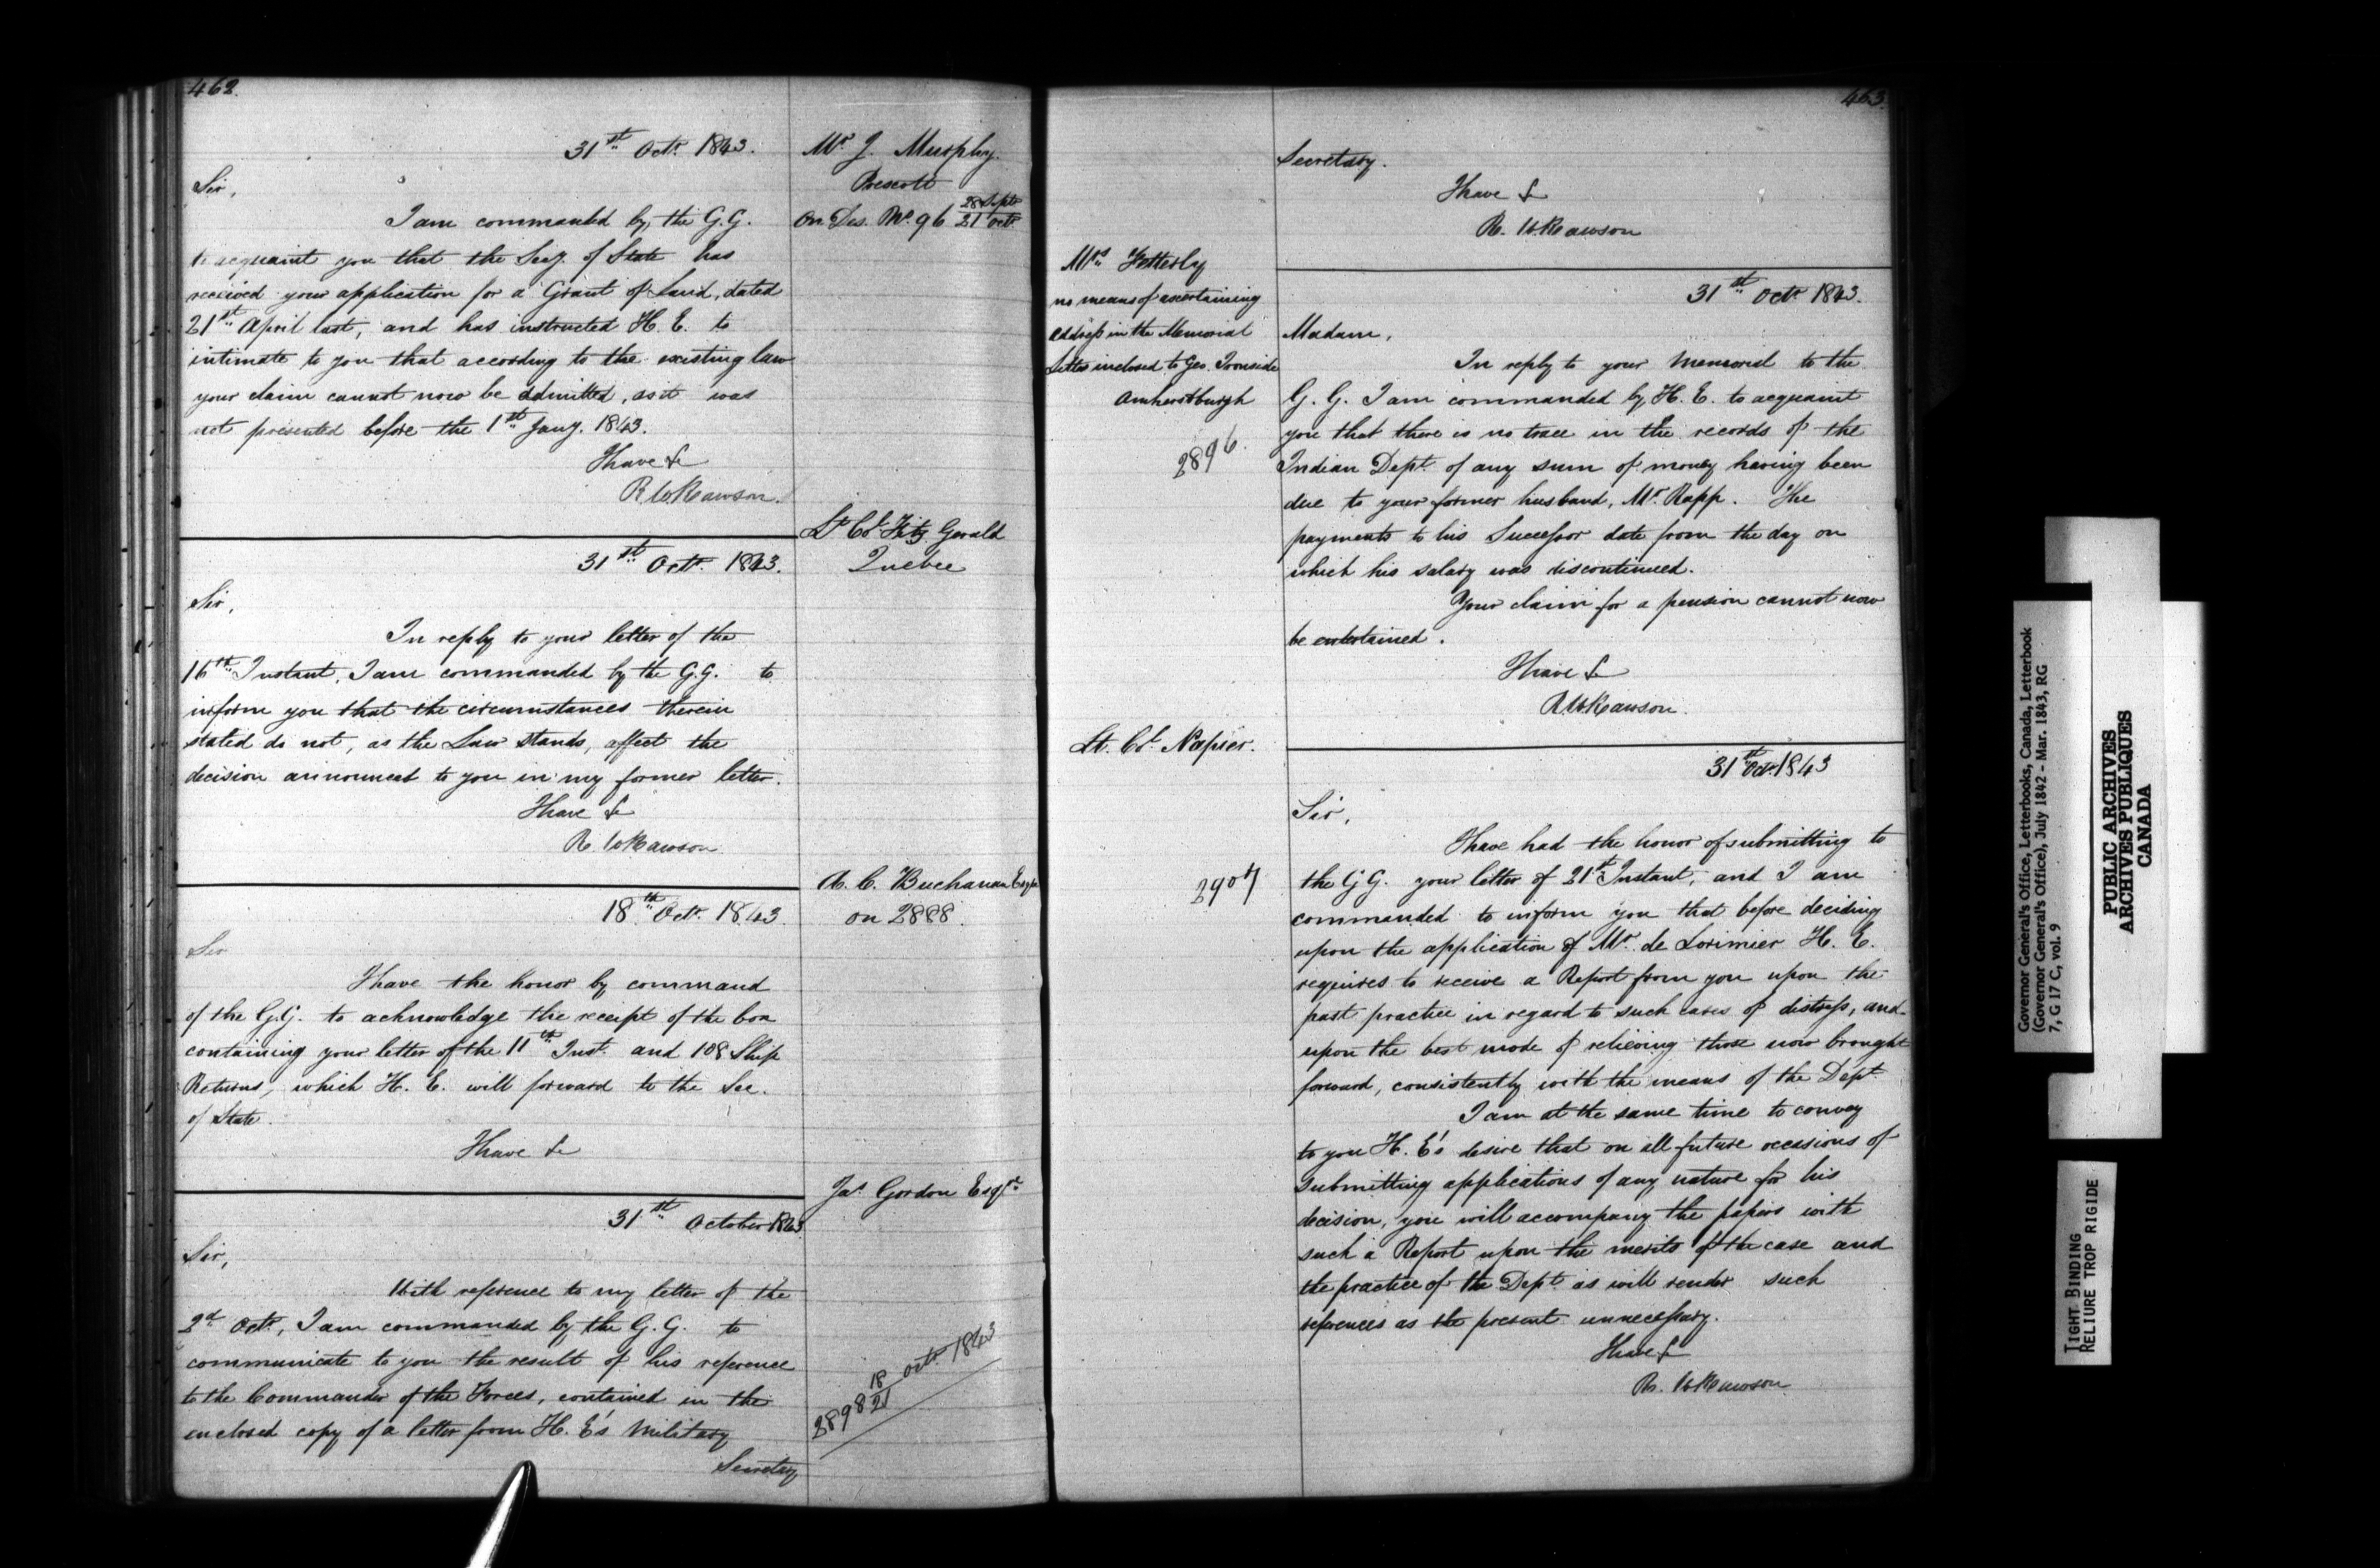 462.
31st Octr. 1843.
Mr. J. Murphy.
Prescott
On Des. No. 96 28 Septr / 21 Octr
Sir,
I am commanded by the G.G.
to acquaint you that the Secy. of State has
received your application for a Grant of Land, dated
21st April last, and has instructed H. E. to
intimate to you that according to the existing law
your claim cannot now be admitted, as it was
not presented before the 1st Jany. 1843.
I have &c
R W Rawson.
Lt. Col. Fitz Gerald
Quebec
31st Octr. 1843.
Sir,
In reply to your letter of the
16th Instant, I am commanded by the G.G. to
inform you that the circumstances therein
stated do not, as the Law stands, affect the
decision announced to you in my former letter.
I have &c
R. W Rawson.
A. C. Buchanan Esqre
on 2888.
18th Octr. 1843.
Sir
I have the honor by command
of the G.G. to acknowledge the receipt of the box
containing your letter of the 11th Inst. and 108 Ship
Returns, which H. E. will forward to the Sec.
of State.
I have &c
Jas. Gordon Esqre
31st October 1843
Sir,
With reference to my letter of the
2d Octr., I am commanded by the G.G. to
communicate to you the result of his reference
to the Commander of the Forces, contained in the
enclosed copy of a letter from H. E's Military
Secretary
2898 18/21 Octr. 1843
463.
Secretary.
I have &c
R. W. Rawson
Mrs. Fetterly
no means of ascertaining
address in the Memorial
Letter inclosed to Geo. Ironside
Amherstburgh
2896.
31st Octr 1843.
Madam,
In reply to your Memorial to the
G. G. I am commanded by H. E. to acquaint
you that there is no trace in the records of the
Indian Dept. of any sum of money having been
due to your former husband, Mr. Rapp. The
payments to his Successor date from the day on
which his salary was discontinued.
Your claim for a pension cannot now
be entertained.
I have &c
R W Rawson.
Lt. Col. Napier.
2907
31st Octr. 1843
Sir,
I have had the honor of submitting to
the G.G. your letter of 21st Instant, and I am
commanded to inform you that before deciding
upon the application of Mr. de Lorimier H. E.
requires to receive a Report from you upon the
past practice in regard to such cases of distress, and
upon the best mode of relieving those now brought
forward, consistently with the means of the Dept.
I am at the same time to convey
to you H. E's desire that on all future occasions of
submitting applications of any nature for his
decision, you will accompany the papers with
such a Report upon the merits of the case and
the practice of the Dept. as will render such
references as the present unnecessary.
I have &c
R. W Rawson
Governor General's Office, Letterbooks, Canada, Letterbook
(Governor General's Office), July 1842 - Mar. 1843, RG
7, G 17 C, vol. 9
PUBLIC ARCHIVES
ARCHIVES PUBLIQUES
CANADA
TIGHT BINDING
RELIURE TROP RIGIDE